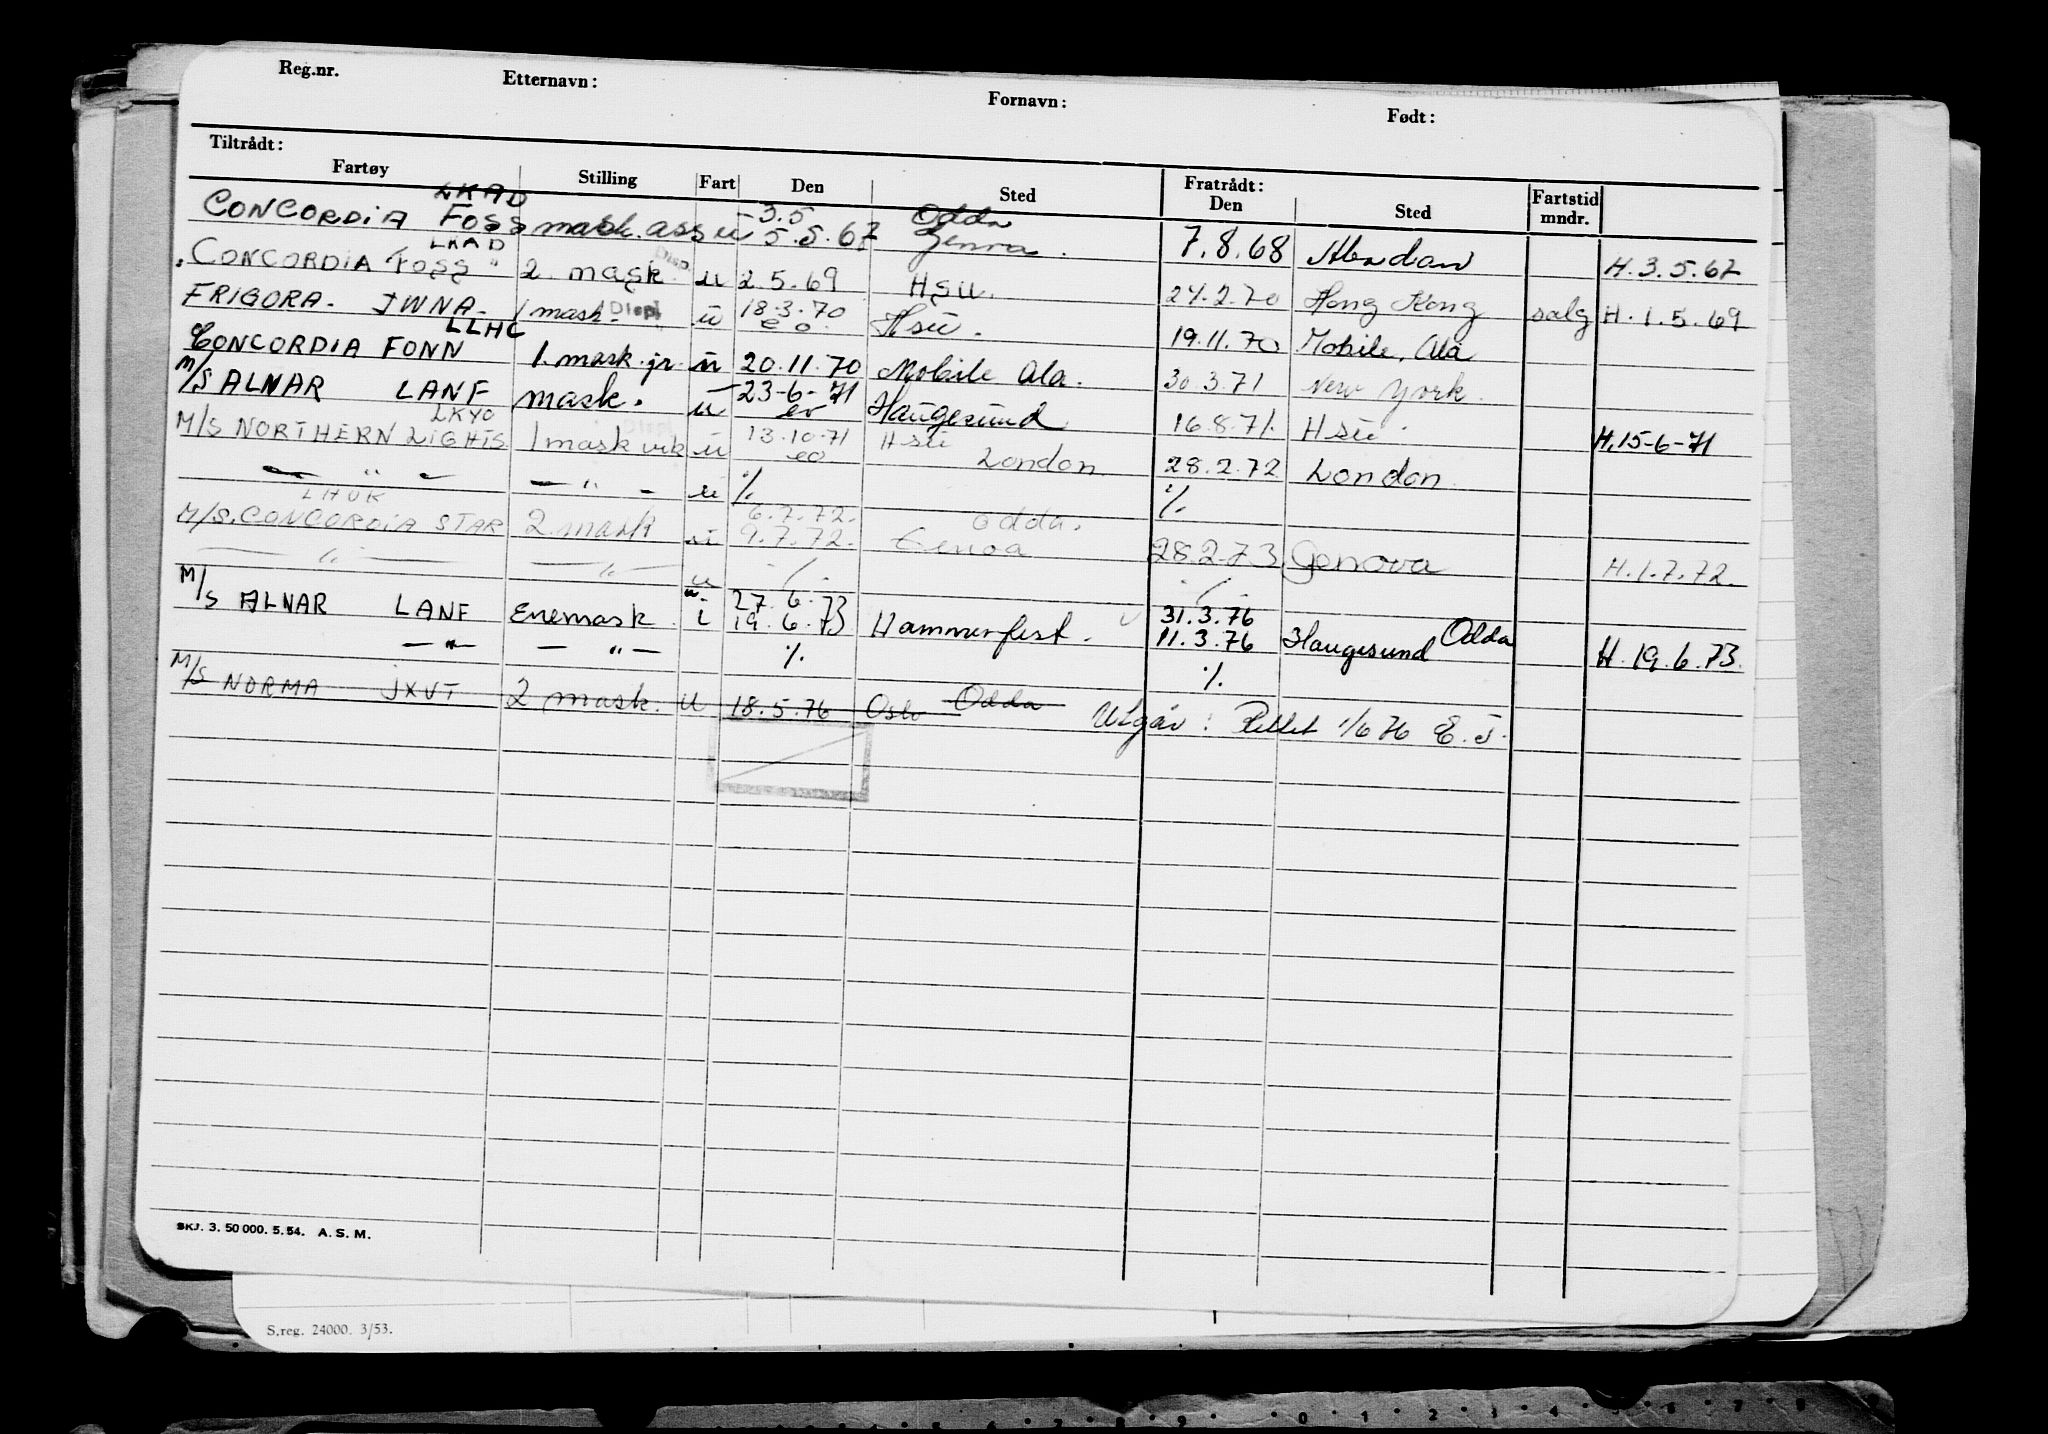 Reg.nr. Etternavn: Fornavn: Født:
Tiltrådt: Fratrådt:
Fartøy Stilling Fart Den Sted Den Sted Fartstid mndr.
LKAD 3.5 Odda
CONCORDIA FOSS mask. ass u 5.5.67 Genra. 7.8.68 Abadan H. 3.5.67
LKAD Disp.
CONCORDIA FOSS " 2. mask. u 2.5.69 HSU. 24.2.70 Hong Kong salg H. 1.5.69
FRIGORA. JWNA 1 mask. Disp. u 18.3.70 Hsu. 19.11.70 Mobile, Ala
eo.
LLHC
CONCORDIA FONN 1. mask. jr. u 20.11.70 Mobile Ala. 30.3.71 New York.
M/S ALNAR LANF mask. u 23-6-71 Haugesund 16.8.71. Hsu. H. 15-6-71
eo
LKYO Disp.
M/S NORTHERN LIGHTS 1 mask vik u 13.10.71 Hsu London 28.2.72 London
eo
— " — — " — u ./. ./.
LHUK 6.7.72. Odda.
M/S. CONCORDIA STAR 2 mask u 9.7.72. Genoa 28.2.73 Genova H. 1.7.72.
— " — — " — u ./. ./.
u. 27.6.73 31.3.76
M/S ALNAR LANF Enemask i 19.6.73 Hammerfest. 11.3.76 Haugesund Odda H. 19.6.73.
— " — — " — ./. ./.
M/S NORMA JXVT 2 mask. u 18.5.76 Oslo Odda
Utgår: Rettet 1/6 76 E.J.
SKJ. 3. 50 000. 5. 54. A. S. M.
S.reg. 24000. 3/53.
5 6 7 8 9 0 1 2 3 4 5 6 7 8